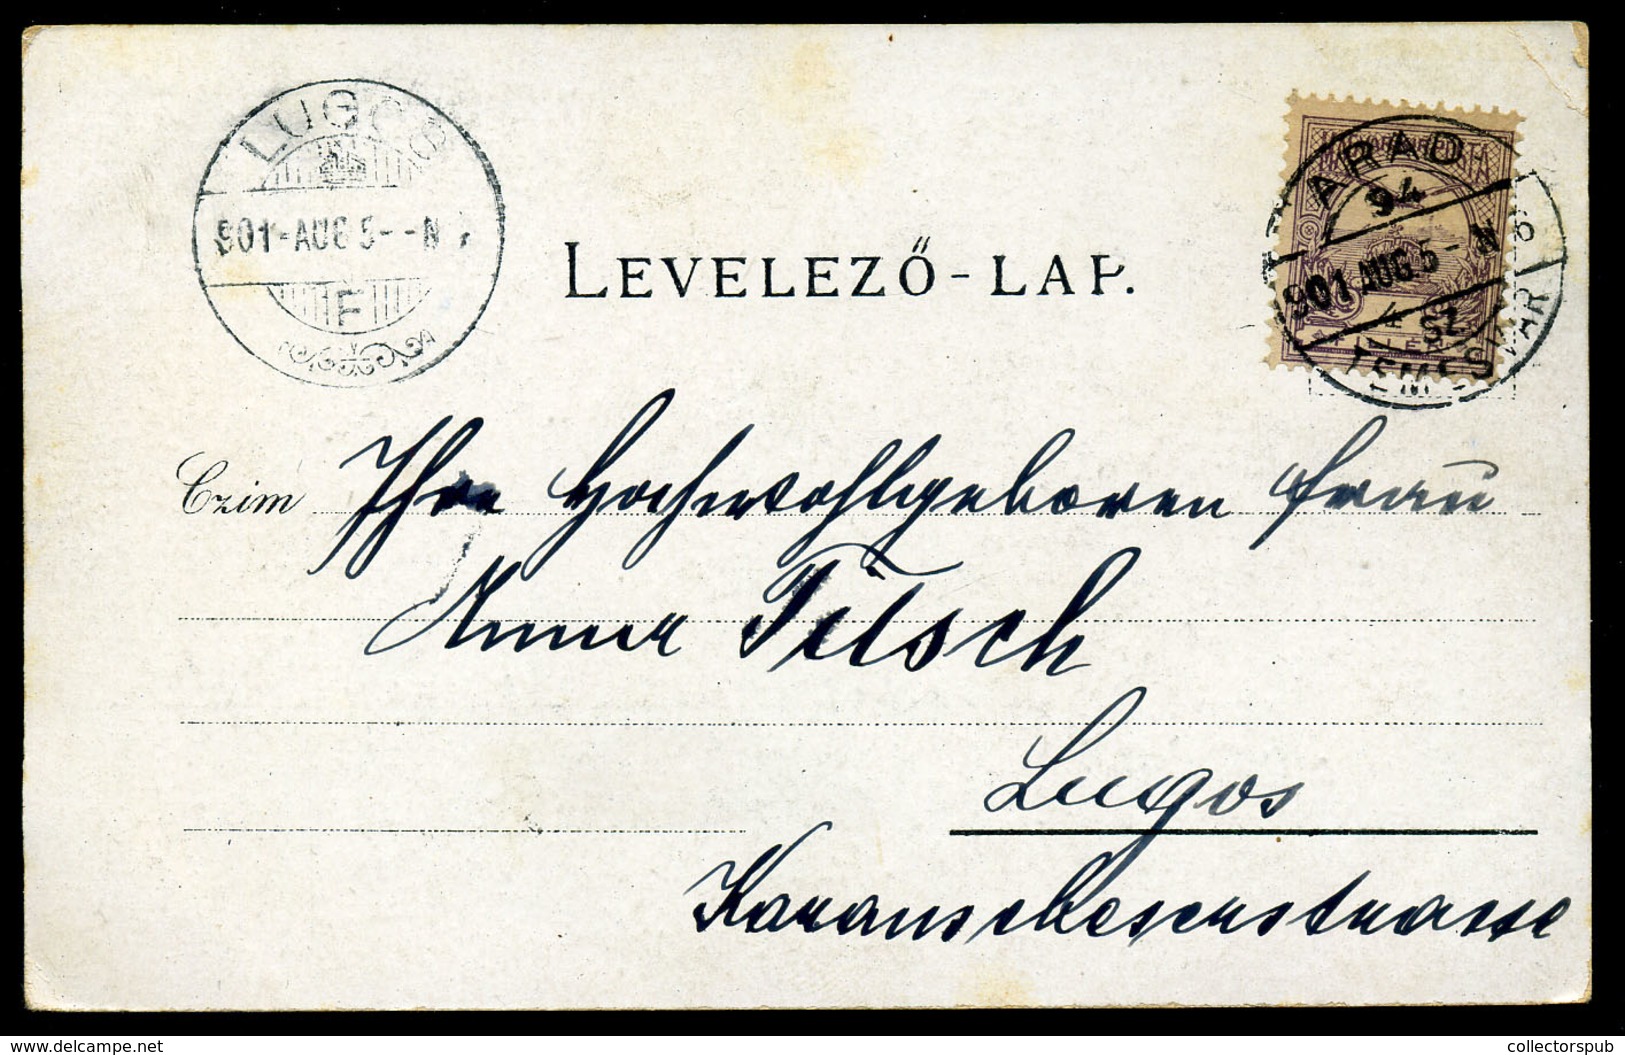 LUGOS
901-AUG 5--N
F
ARAD
94
901 AUG 5-N
4 SZ.
TEMESVÁR
LEVELEZŐ-LAP.
Czim Ihre Hochwohlgeboren Frau
Anna Titsch
Lugos
Karansebeserstrasse
www.delcampe.net
collectorspub